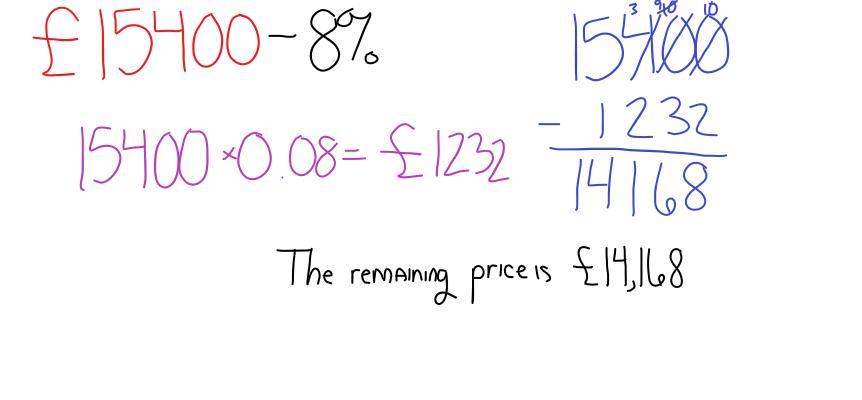 £15400 - 8%
15400 × 0.08 = £1232
3 9 10 10
15400
- 1232
14168
The remaining price is £14,168